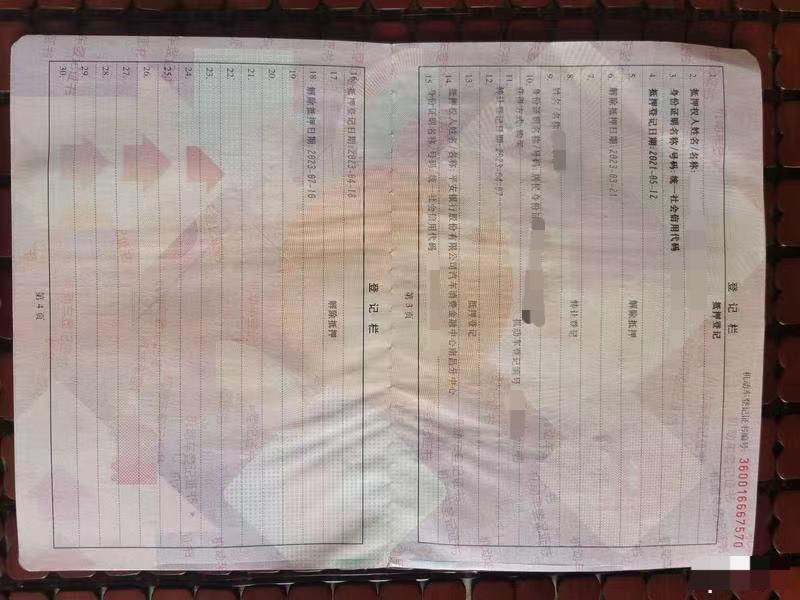 机动车登记证书编号 360016667570
登 记 栏
1. 抵押登记
2. 抵押权人姓名/名称:
3. 身份证明名称/号码:统一社会信用代码
4. 抵押登记日期:2021-05-12
5. 解除抵押
6. 解除抵押日期:2023-03-21
7.
8. 转让登记
9. 姓名/名称:
10. 身份证明名称/号码:居民身份证
11. 获得方式:购买 机动车登记编号
12. 转让登记日期:2023-04-07
13. 抵押登记
14. 抵押权人姓名/名称:平安银行股份有限公司汽车消费金融中心南昌分中心
15. 身份证明名称/号码:统一社会信用代码
第 3 页
登 记 栏
16. 抵押登记日期:2023-04-18
17. 解除抵押
18. 解除抵押日期:2023-07-10
19.
20.
21.
22.
23.
24.
25.
26.
27.
28.
29.
30.
第 4 页